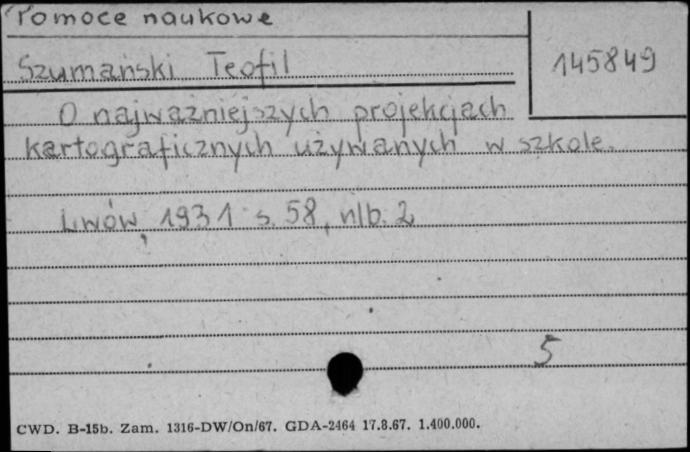 Pomoce naukowe
145849
Szumański Teofil
O najważniejszych projekcjach
kartograficznych używanych w szkole.
Lwów, 1931 s. 58, nlb. 2
5
CWD. B-15b. Zam. 1316-DW/On/67. GDA-2464 17.8.67. 1.400.000.